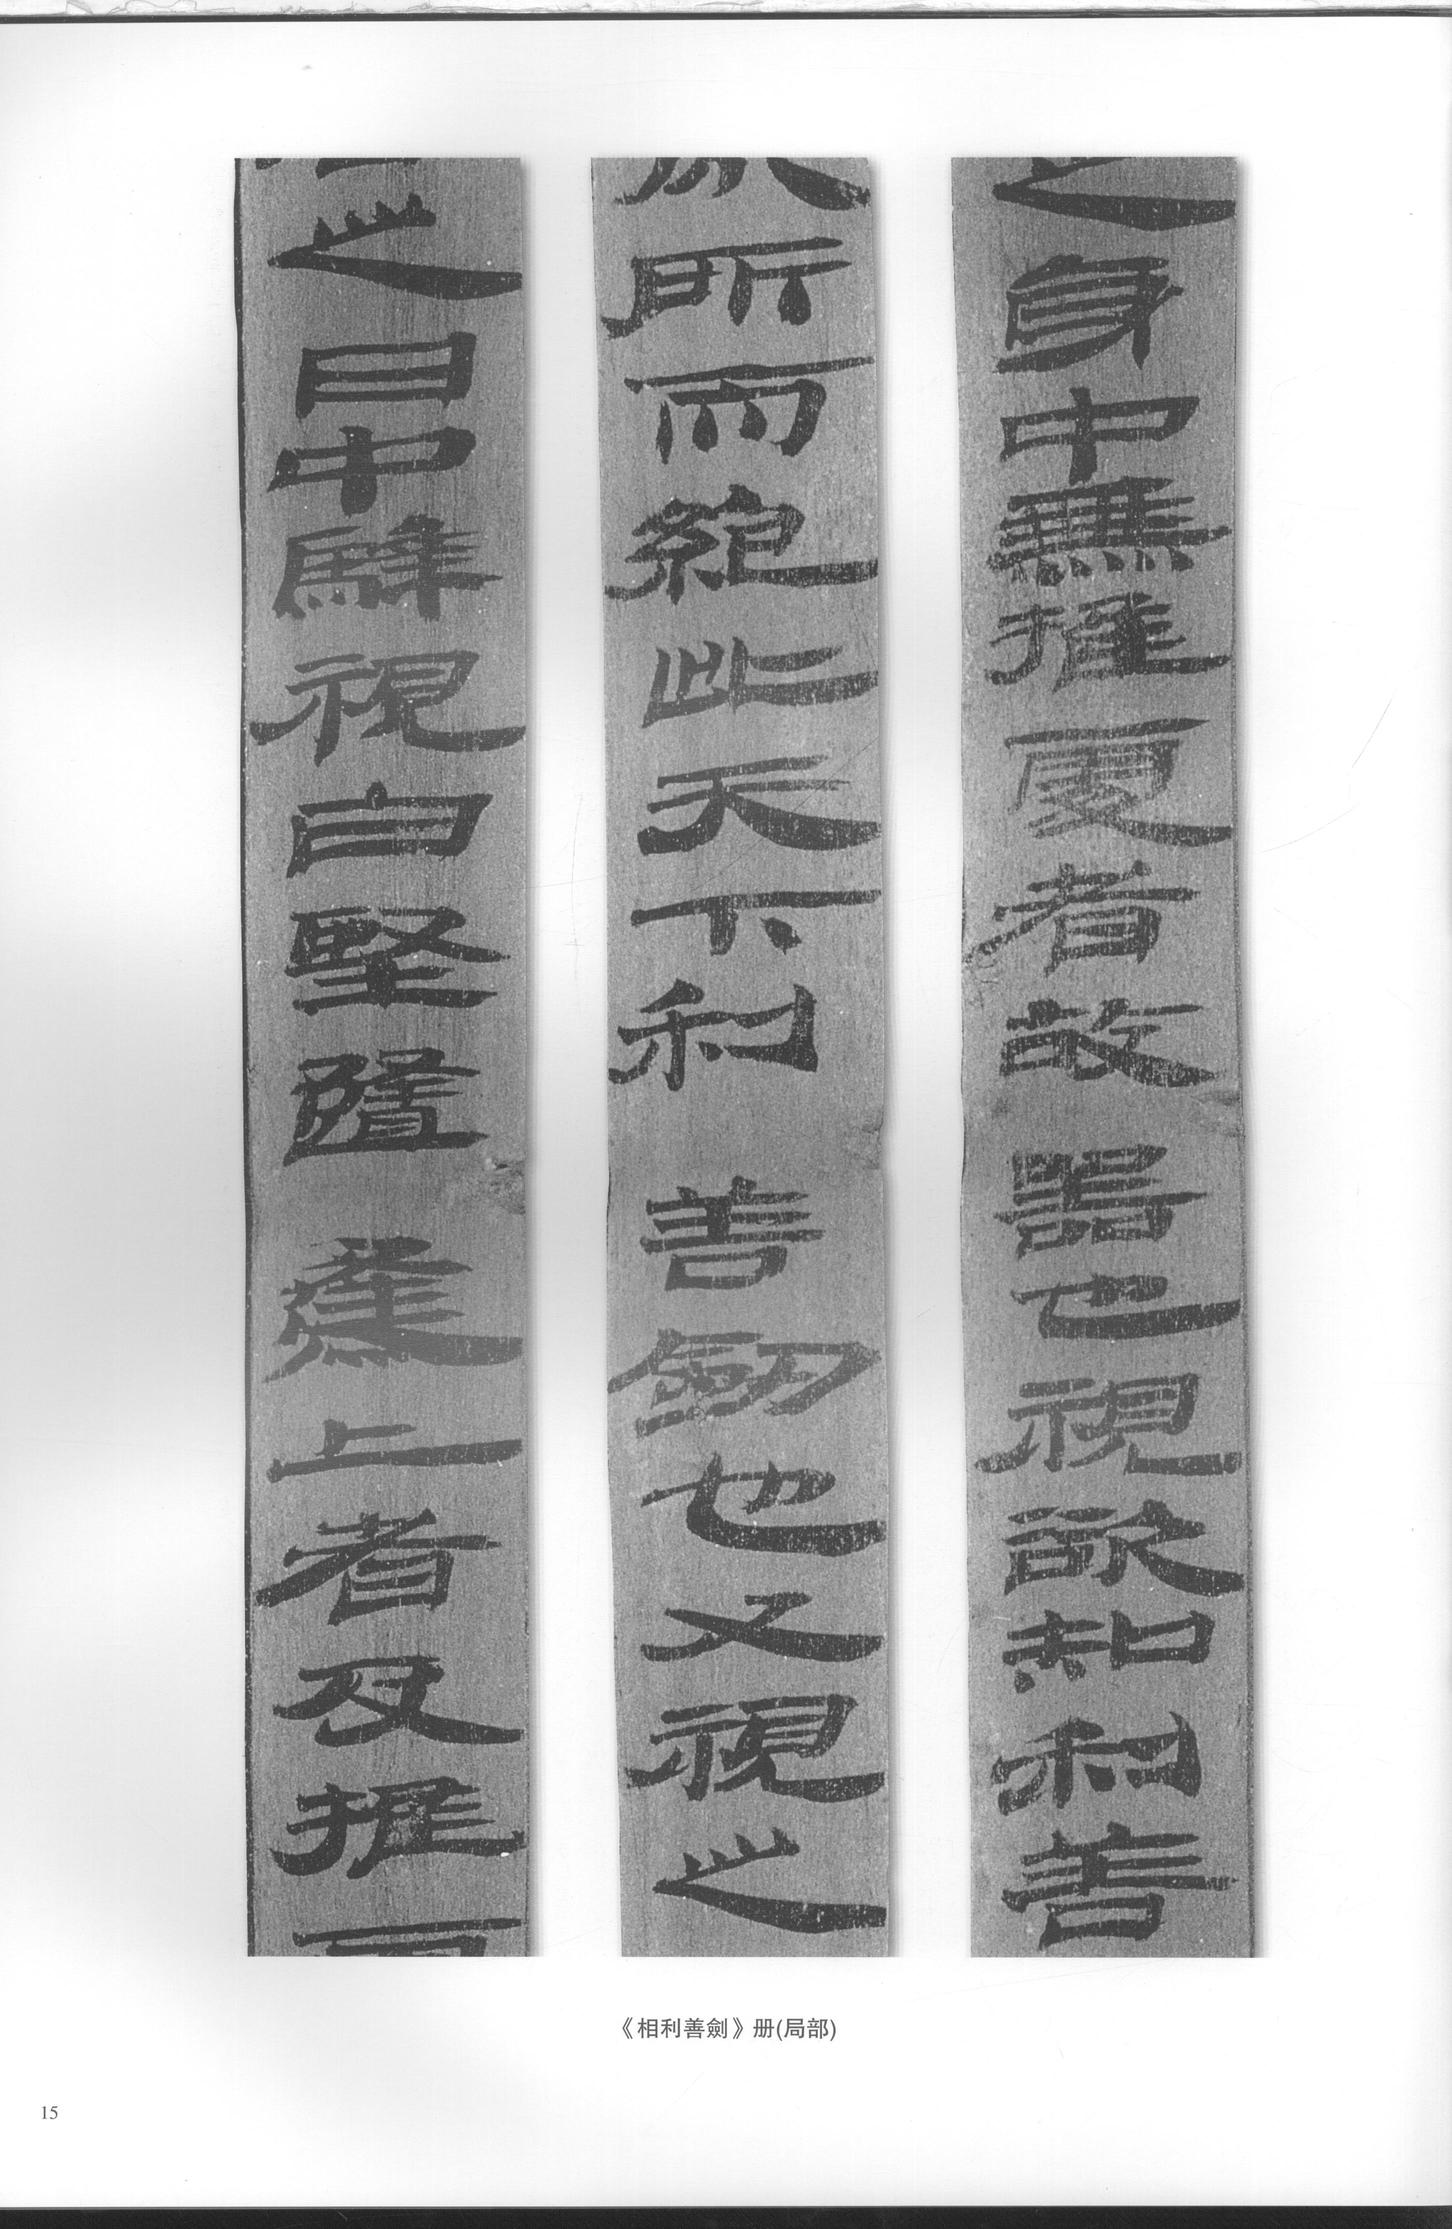 之身中無推處者故器也視欲知利善
所而絕此天下利善劍也又視之
之日中騂視白堅隨逢上者及推
《相利善劍》册(局部)
15